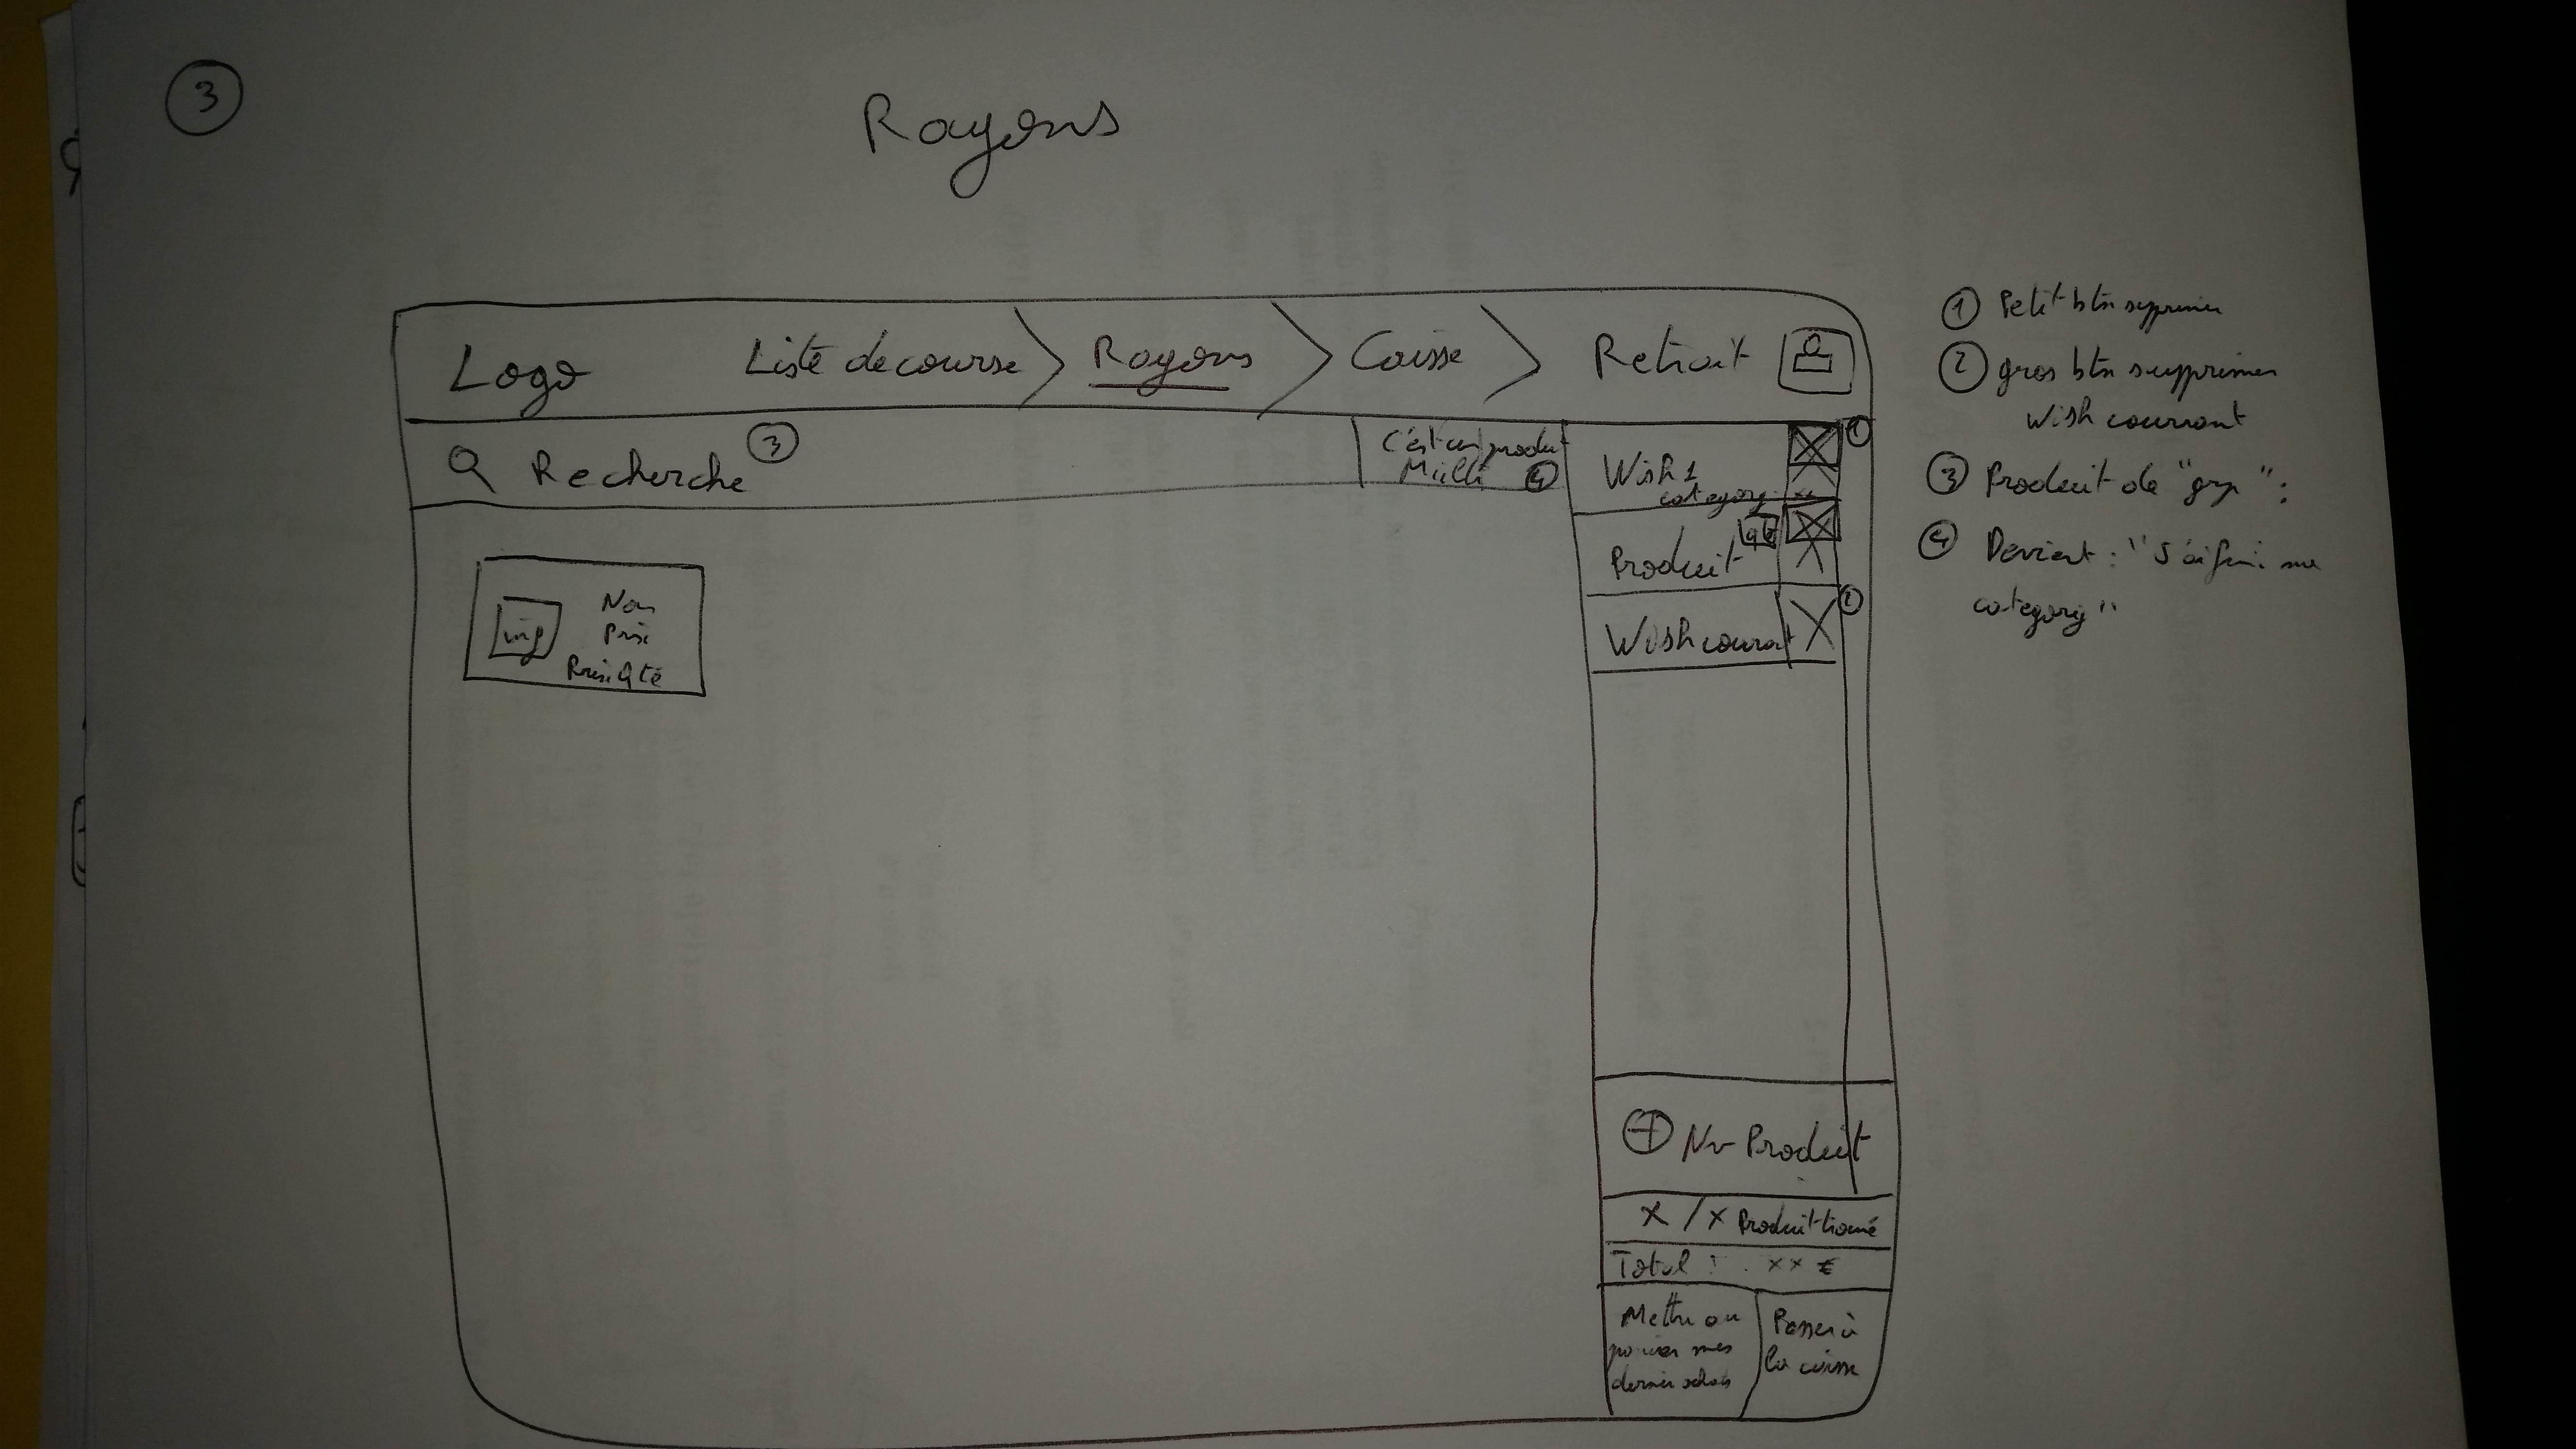 3
Rayons
Logo Liste de course > Rayons > Caisse > Retrait
Recherche 3
C'est un produit
Milli 4
Wish 1
category 1
Produit qté
Wish courant 2
img
Nom
Prix
Prix Qté
+ Nv Produit
X / X Produit trouvé
Total : xx €
Mettre au
panier mes
dernier achats
Passer à
la caisse
1 Petit btn supprimer
2 gros btn supprimer
Wish courrant
3 Produit de " ":
4 Devient : "J'ai fini ma
category"